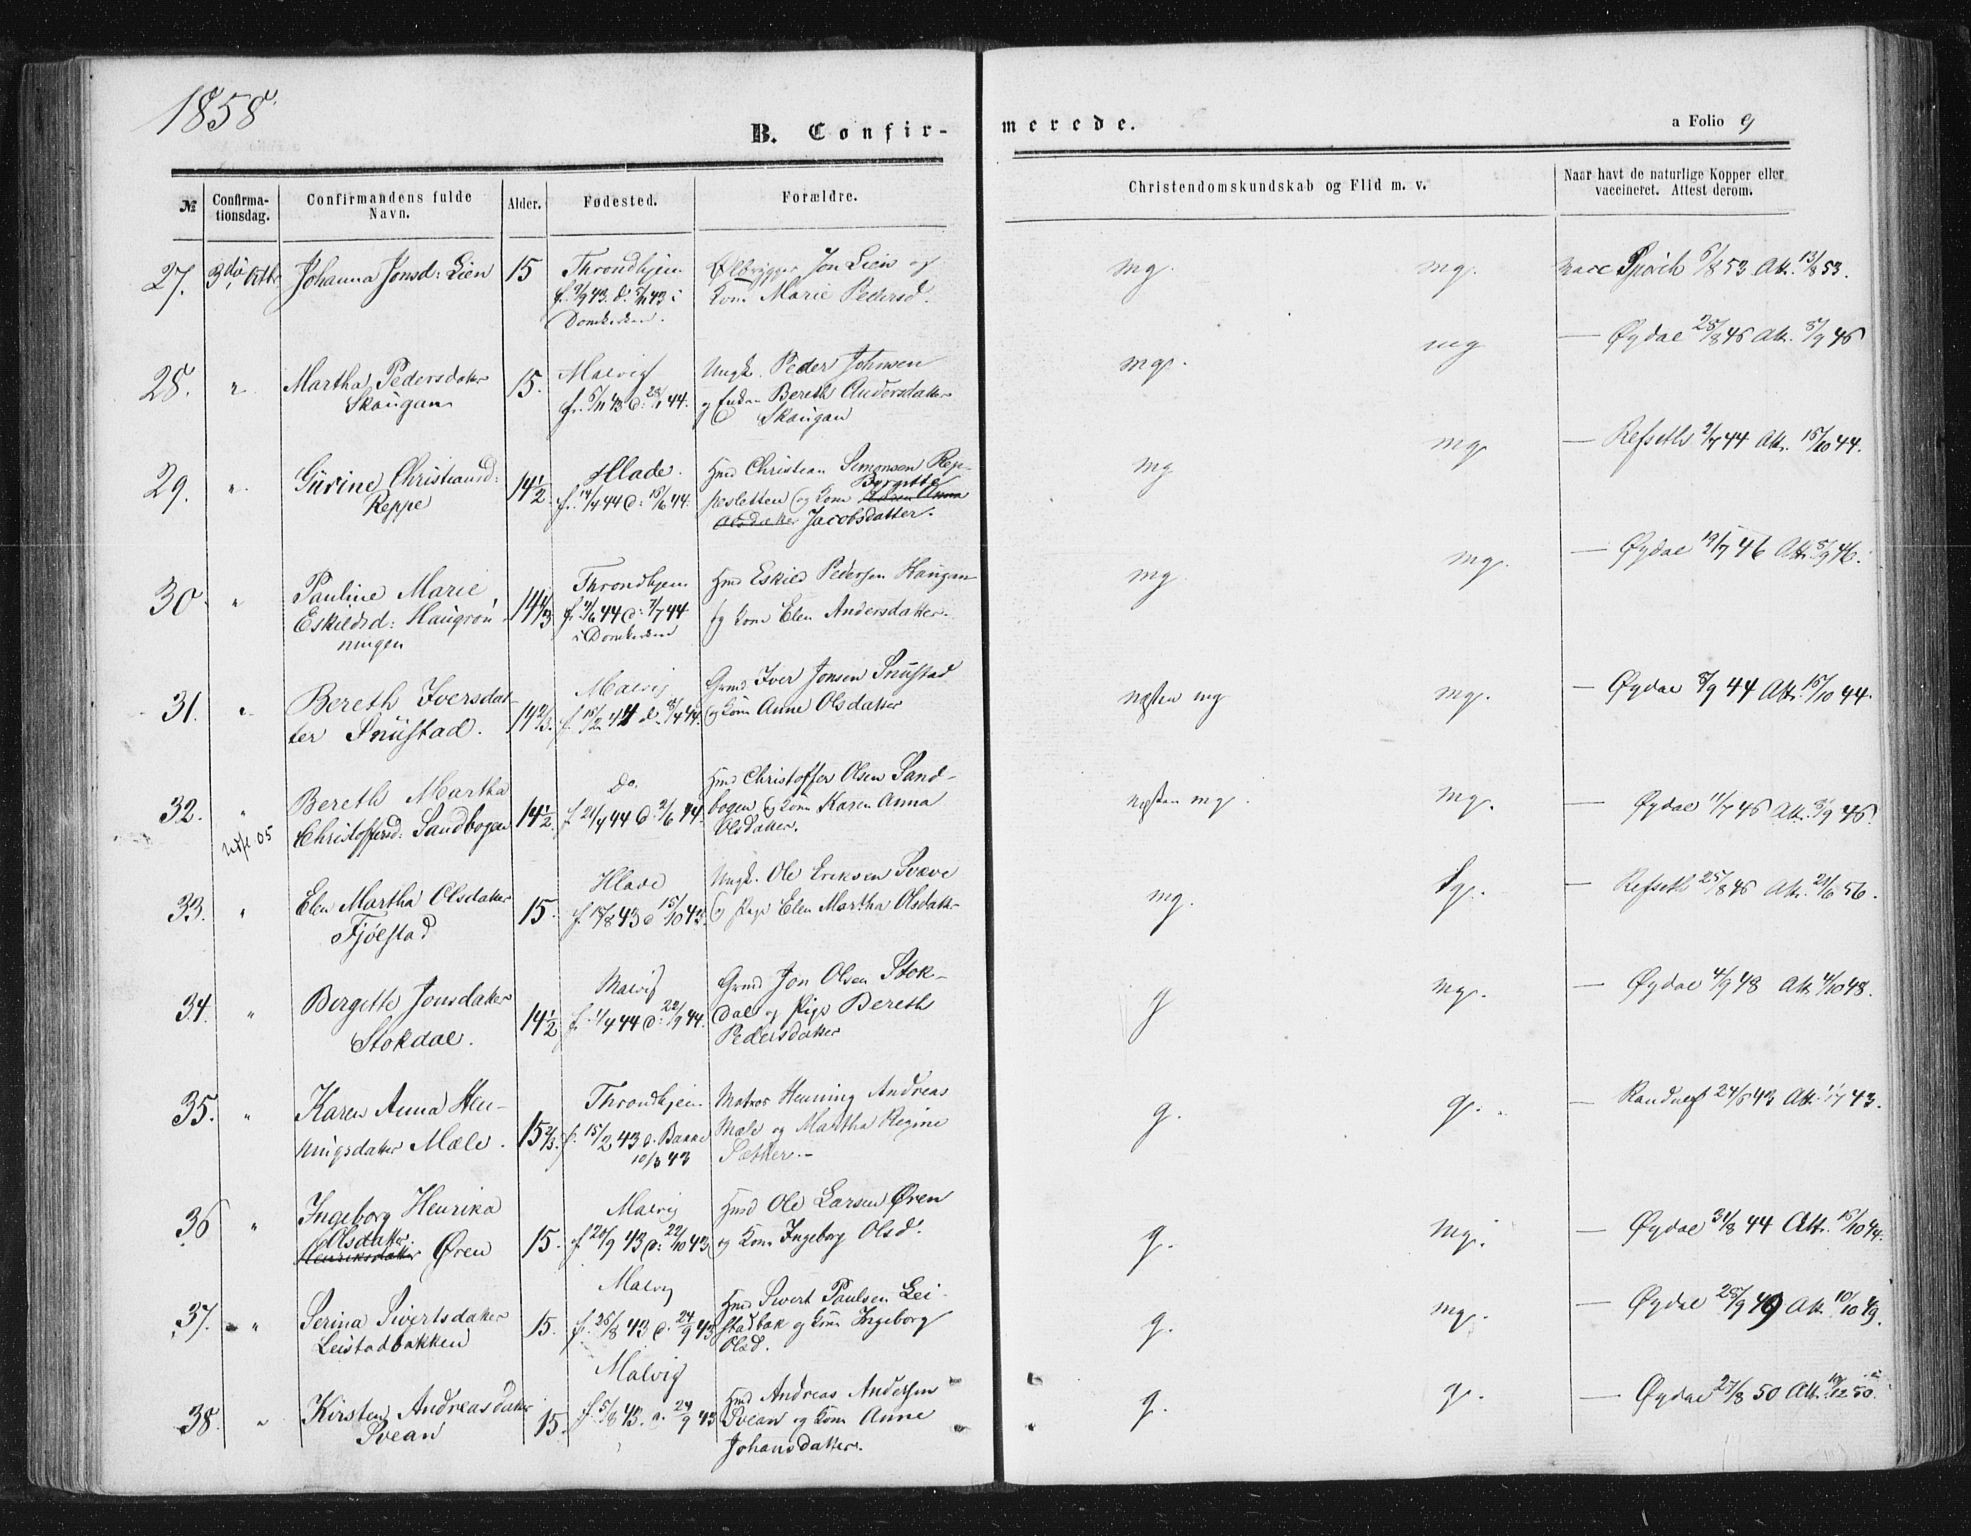 1858
B. Confir-
merede.
a Folio 9
№
Confirma-
tionsdag.
Confirmandens fulde
Navn.
Alder.
Fødested.
Forældre.
Christendomskundskab og Flid m. v.
Naar havt de naturlige Kopper eller
vaccineret. Attest derom.
27. Johanna Jonsd: Lien 15 Throndhjem Jon Lien og mg. mg. 6/8 53 Att. 13/8 53.
f. 2/9 43. d. 5/11 43 i Kone Marie Pedersd.
Domkirken.
28. " Martha Pedersdatter 15. Malvig Ungk. Peder Johnsen mg. mg — Øydal 25/8 46 Att. 8/9 46
Skaugan f. 5/11 43 d: 28/1 44. og Enken Bereth Andersdatter
Skaugan
29. " Gurine Christiansd: 14 1/2 Hlade. Hmd Christian Simonsen Rep- mg mg. — Refseth 2/7 44 Att. 15/10 44.
Reppe f. 14/4 44 d: 16/6 44. pesletten og Kone Birgitte
Jacobsdatter.
30. " Pauline Marie 14 1/3 Throndhjem Hmd Eskild Pedersen Haugan mg. mg. — Øydal 19/7 46 Att. 8/9 46.
Eskildsd: Haugrøn- 44 d: 7/7 44 og Kone Elen Andersdatter.
ningen i Domkirken
31. " Bereth Iversdat- 14 2/3. Malvig Grmd Iver Jonsen Snustad næsten mg mg. — Øydal 8/9 44 Att. 15/10 44.
ter Snustad. f. 15/2 44 d. 8/4 44. og Kone Anne Olsdatter
32. " Bereth Martha 14 1/2 Do. Hmd Christoffer Olsen Sand- næsten mg. mg. — Øydal 11/7 46 Att. 8/9 46.
05 Christoffersd: Sandbogen f. 21/4 44 d. 2/6 44. bogen og Kone Karen Anna
Olsdatter.
33. " Elen Martha Olsdatter 15. Hlade Ungk. Ole Eriksen Svève mg. — Refseth 25/8 46 Att. 21/6 56.
Fjølstad f. 18/8 43 d 15/10 43. og Pige Elen Martha Olsdatter
34. " Bergitte Jonsdatter 14 1/2 Malvig Grmd Jon Olsen Stok- g mg. — Øydal 4/9 48 Att. 4/10 48.
Stokdal. f. 1/4 44 d: 22/9 44. dal og Pige Bereth
Pedersdatter
35. " Karen Anna Hen- 15 2/3. Throndhjem Matros Henning Andreas g. g. — 24/5 43 Att. 1/7 43.
ningsdatter Mæle. f. 15/2 43 d. Bakke Mæle og Martha Regine
10/3 43 Sæther.
36 " Ingeborg Henrika 15. Malvig Hmd Ole Larsen Øren g. mg. — Øydal 31/8 44 Att. 15/10 44.
Olsdatter f. 20/9 43 d: 22/10 43 og Kone Ingeborg Olsd.
Henriksdatter Øren
37. " Serina Sivertsdatter 15. Malvig Hmd Sivert Paulsen Lei- g. mg. — Øydal 28/9 49 Att. 10/10 49.
Leistadbakken f. 26/8 43 d. 24/9 43 stadbak og Kone Ingeborg
Olsd.
38. " Kirsten Andreasdatter 15. Malvig Hmd Andreas Andersen g. g. — Øydal 27/8 50 Att. 50.
Svean f. 5/8 43. d. 24/9 43 Svean og Kone Anne
Johansdatter.